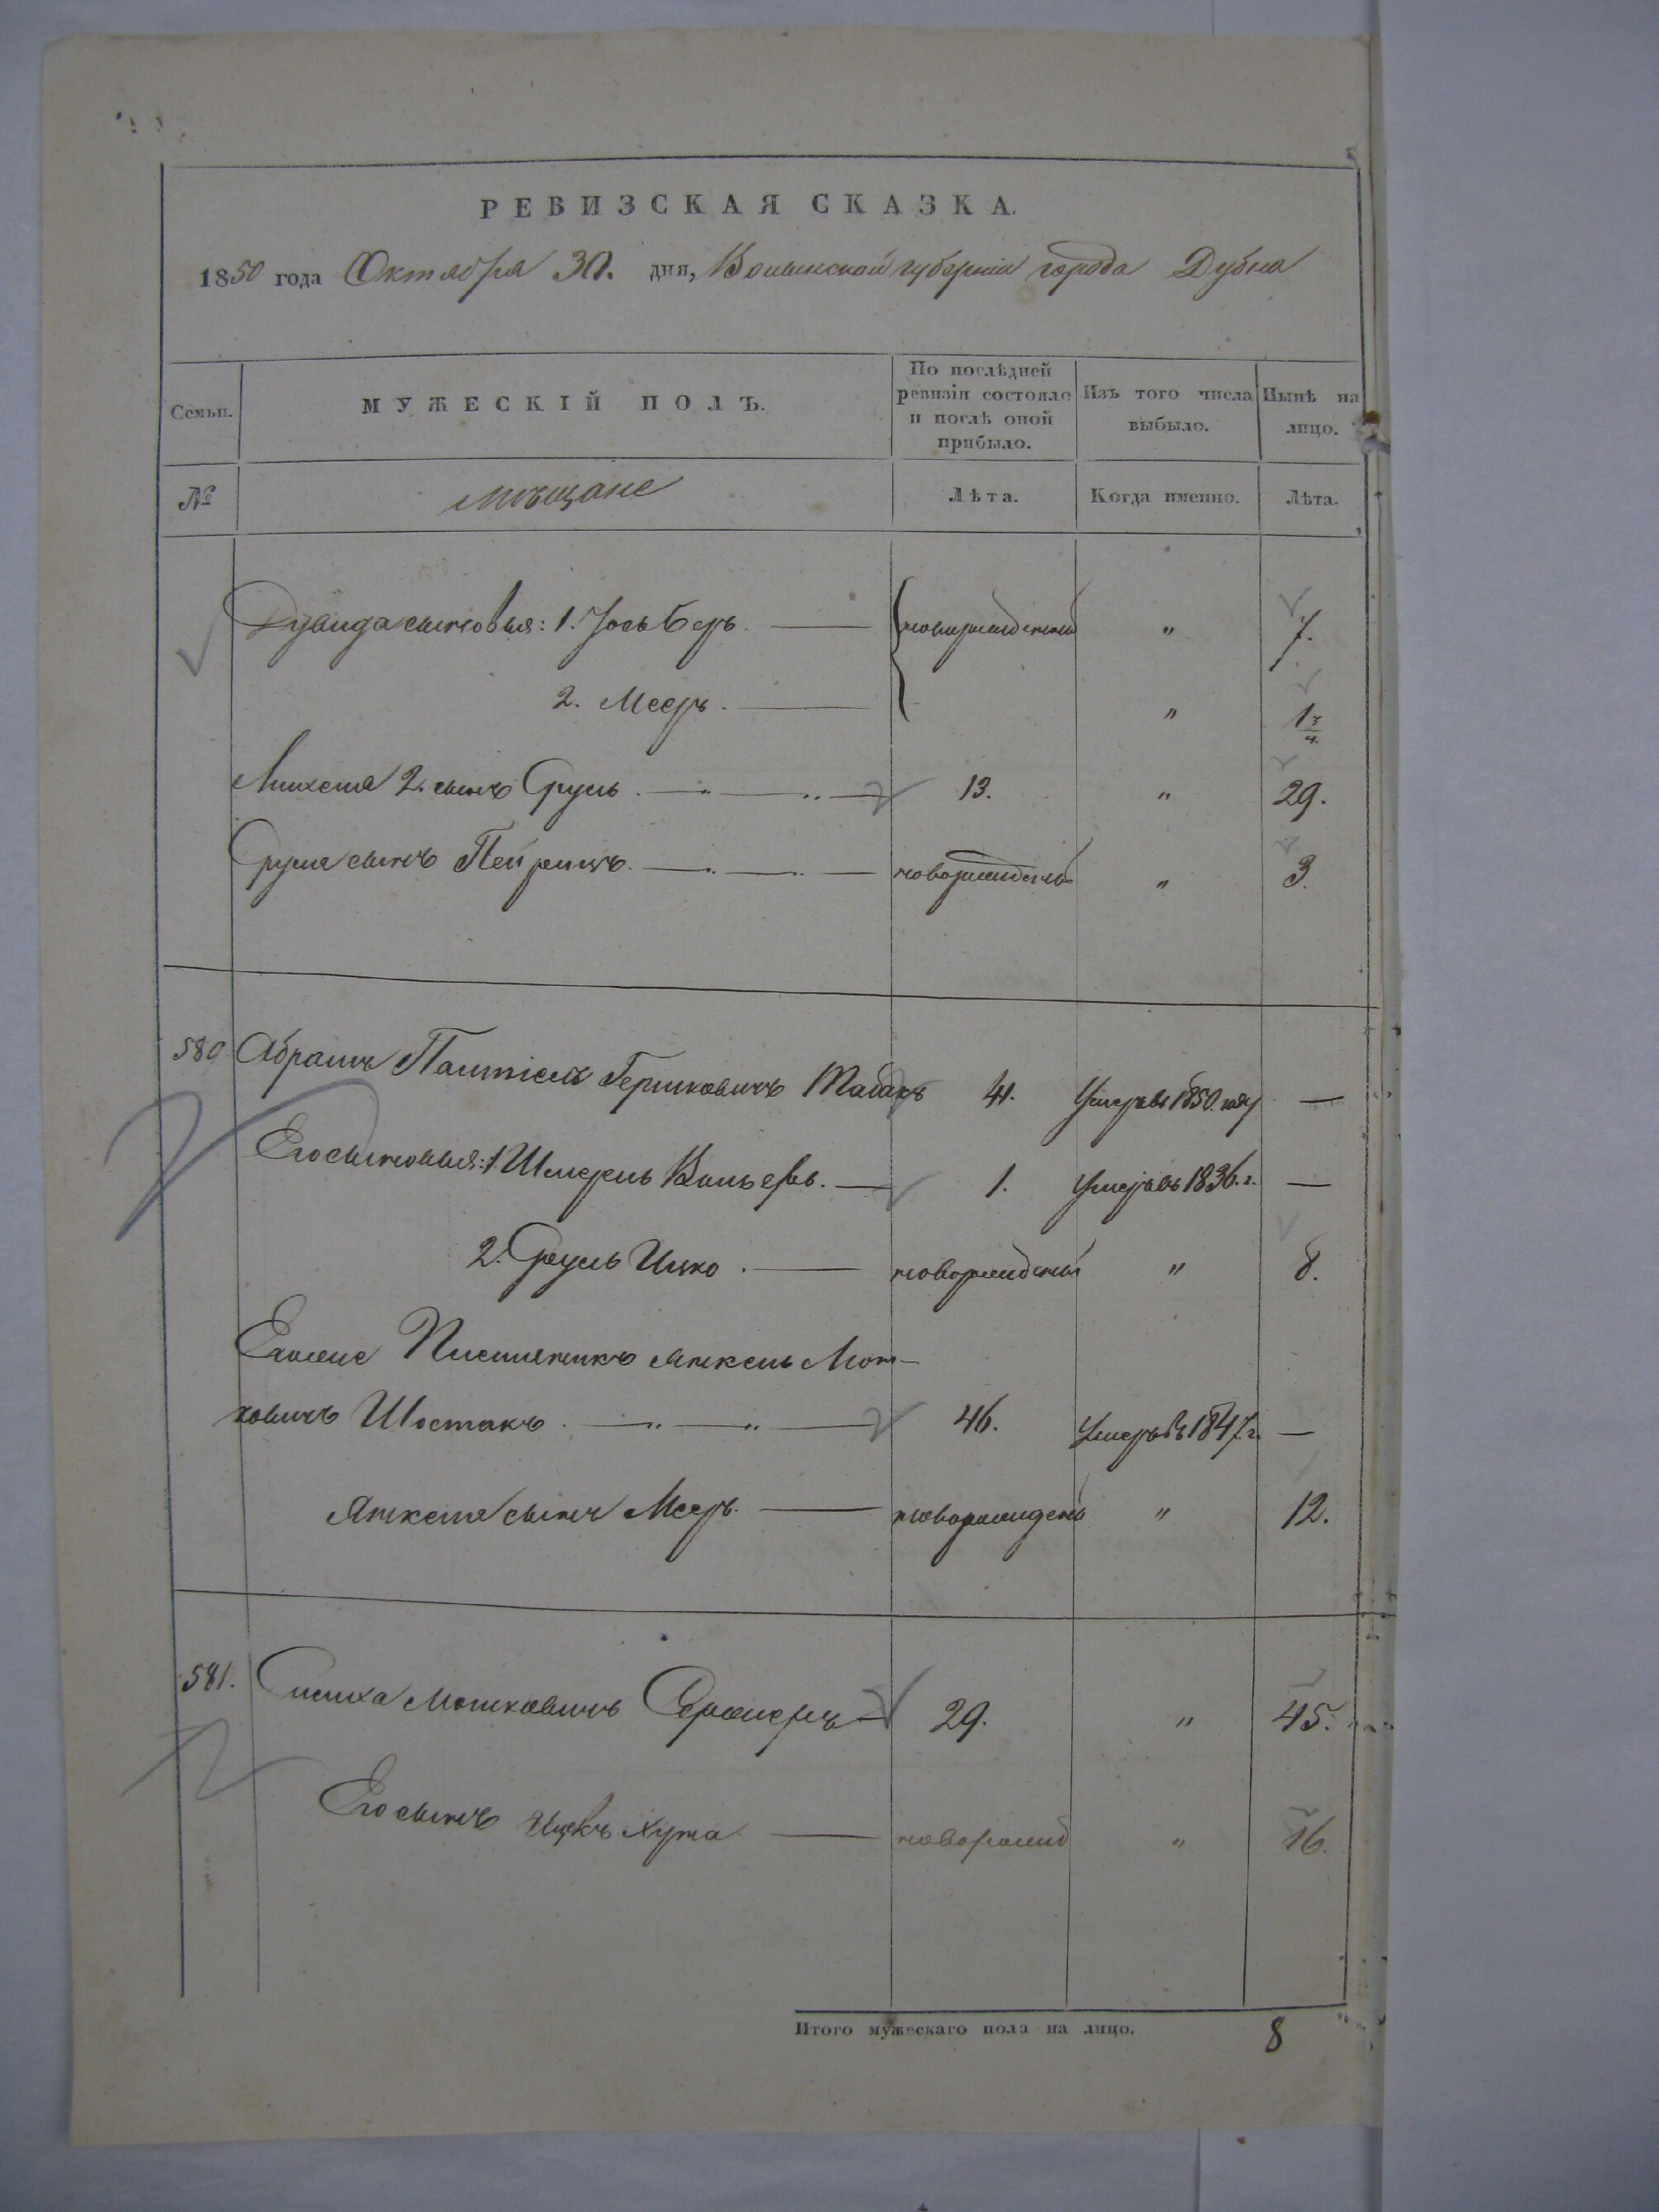 РЕВИЗСКАЯ СКАЗКА.
1850 года Октября 30. дня, Волынской губернии города Дубна
Семьи. МУЖЕСКІЙ ПОЛЪ. По послѣдней ревизіи состояло и послѣ оной прибыло. Изъ того числа выбыло. Нынѣ на лицо.
№ Мѣщане Лѣта. Когда именно. Лѣта.
Дувида сыновья: 1. Іось Беръ новорожденный " 7.
2. Мееръ. " 1 3/4.
2. сынъ Сруль 13. " 29.
Сруля сынъ новорожденный " 3.
580 Абрамъ Палтіель Гершковичъ Табакъ 41. Умеръ въ 1850. году —
Его сыновья: 1. Шмерель Вольфъ. 1. Умеръ въ 1836. г. —
2. Сруль Ицко новорожденный " 8.
Племянникъ Янкель Мош-
ковичъ Шостакъ 46. Умеръ въ 1847. г. —
Янкеля сынъ Мееръ. новорожденъ " 12.
581. Симха Мошковичъ 29. " 45.
Его сынъ Ицекъ Хуна новорожд " 16.
Итого мужескаго пола на лицо. 8